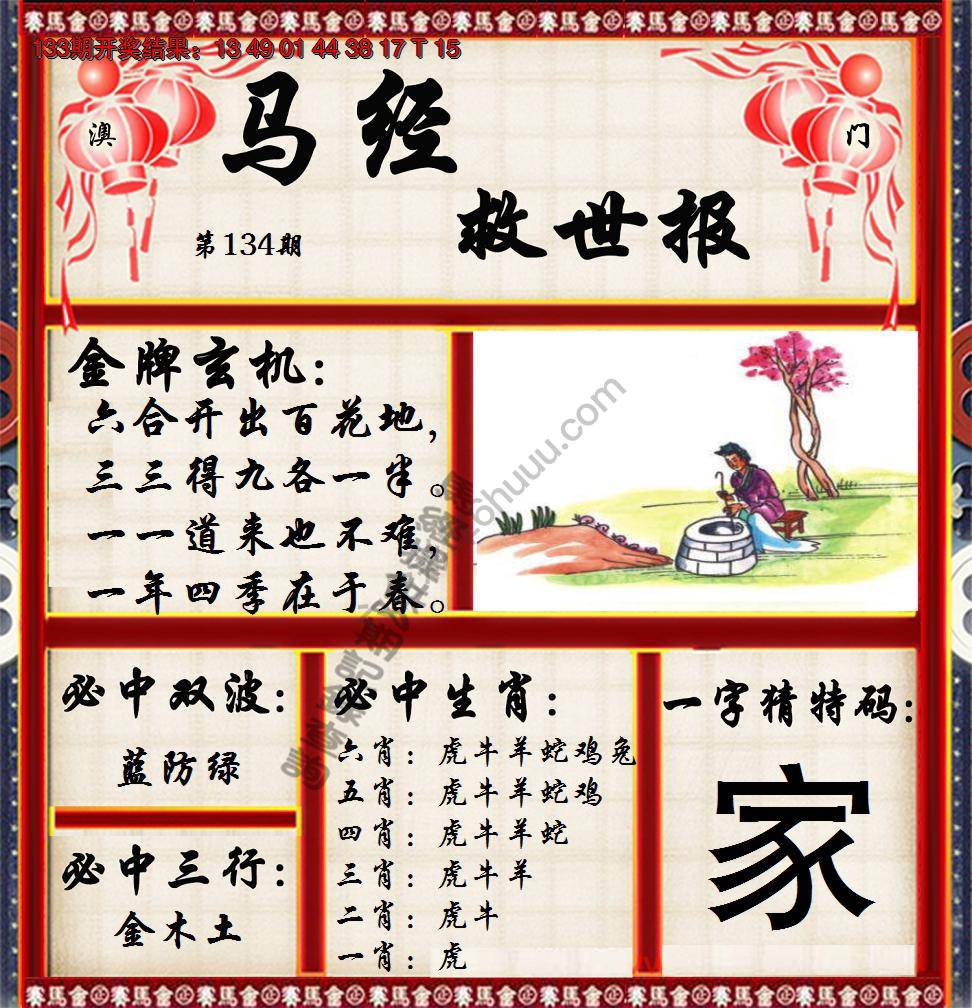 133期开奖结果：13 49 01 44 38 17 T 15
澳 门
马经
救世报
第134期
金牌玄机：
六合开出百花地，
三三得九各一半。
一一道来也不难，
一年四季在于春。
必中双波：
蓝防绿
必中三行：
金木土
必中生肖：
六肖：虎牛羊蛇鸡兔
五肖：虎牛羊蛇鸡
四肖：虎牛羊蛇
三肖：虎牛羊
二肖：虎牛
一肖：虎
一字猜特码：
家